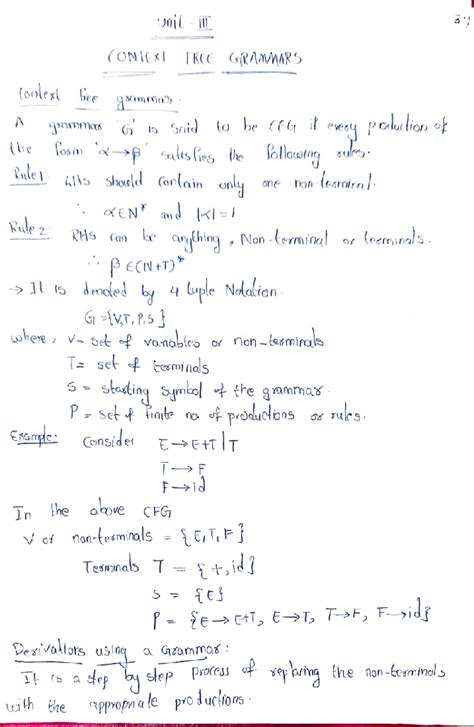 Unit - III
37
CONTEXT FREE GRAMMARS
Context free grammar.
A grammar 'G' is said to be CFG if every production of
the form 'α→β' satisfies the following rules.
Rule 1 LHS should contain only one non-terminal.
∴ α∈N* and |α|=1
Rule 2 RHS can be anything, Non-terminal or terminals.
∴ β∈(N+T)*
→ It is denoted by 4 tuple Notation.
G={V,T,P,S}
where, V- set of variables or non-terminals
T= set of terminals
S = starting symbol of the grammar.
P = set of finite no of productions or rules.
Example: Consider E→E+T|T
T→F
F→id
In the above CFG
V or non-terminals = {E,T,F}
Terminals T = {+,id}
S = {E}
P = {E→E+T, E→T, T→F, F→id}
Derivations using a Grammar:
It is a step by step process of replacing the non-terminals
with the appropriate productions.